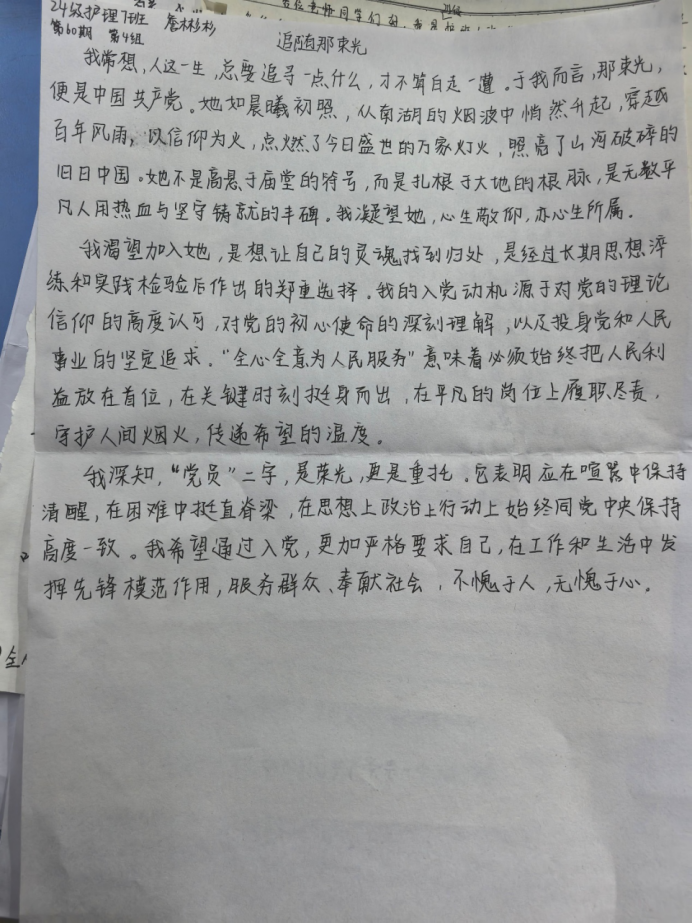 各位老师同学们好,我是
24级护理7班
第60期 第4组
追随那束光
我常想,人这一生,总要追寻一点什么,才不算白走一遭。于我而言,那束光,
便是中国共产党。她如晨曦初照,从南湖的烟波中悄然升起,穿越
百年风雨,以信仰为火,点燃了今日盛世的万家灯火,照亮了山河破碎的
旧日中国。她不是高悬于庙堂的符号,而是扎根于大地的根脉,是无数平
凡人用热血与坚守铸就的丰碑。我凝望她,心生敬仰,亦心生所属。
我渴望加入她,是想让自己的灵魂找到归处,是经过长期思想淬
练和实践检验后作出的郑重选择。我的入党动机源于对党的理论
信仰的高度认可,对党的初心使命的深刻理解,以及投身党和人民
事业的坚定追求。“全心全意为人民服务”意味着必须始终把人民利
益放在首位,在关键时刻挺身而出,在平凡的岗位上履职尽责,
守护人间烟火,传递希望的温度。
我深知,“党员”二字,是荣光,更是重托。它表明应在喧嚣中保持
清醒,在困难中挺直脊梁,在思想上政治上行动上始终同党中央保持
高度一致。我希望通过入党,更加严格要求自己,在工作和生活中发
挥先锋模范作用,服务群众、奉献社会,不愧于人,无愧于心。